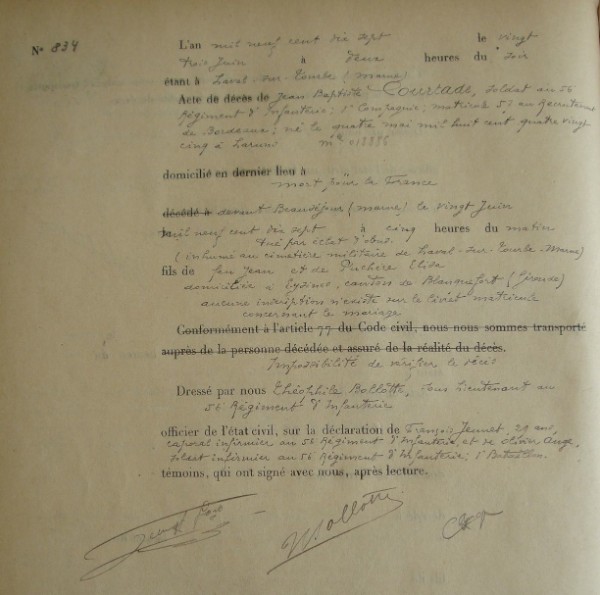 N° 834
L'an mil neuf cent dix sept le vingt
trois Juin à deux heures du soir
étant à Laval-sur-Tourbe (Marne)
Acte de décès de Jean Baptiste Courtade, soldat au 56
Régiment d'Infanterie; 1° Compagnie; matricule au Recrutement
de Bordeaux; né le quatre mai mil huit cent quatre vingt
cinq à Laruns
domicilié en dernier lieu à
mort pour la France
décédé à devant Beauséjour (Marne) le vingt Juin
mil neuf cent dix sept à cinq heures du matin
tué par éclat d'obus.
(inhumé au cimetière militaire de Laval-sur-Tourbe-Marne)
fils de feu Jean et de Elisa
domiciliée à Eyzines, canton de Blanquefort (Gironde)
aucune inscription n'existe sur le livret matricule
concernant le mariage
Conformément à l'article 77 du Code civil, nous nous sommes transporté
auprès de la personne décédée et assuré de la réalité du décès.
Impossibilité de vérifier le décès
Dressé par nous Théophile Bollotte, sous Lieutenant au
56 Régiment d'Infanterie
officier de l'état civil, sur la déclaration de François Jeunet, 29 ans,
caporal infirmier au 56 Régiment d'Infanterie, et de Ange,
soldat infirmier au 56 Régiment d'Infanterie; 1° Bataillon.
témoins, qui ont signé avec nous, après lecture.
Bollotte